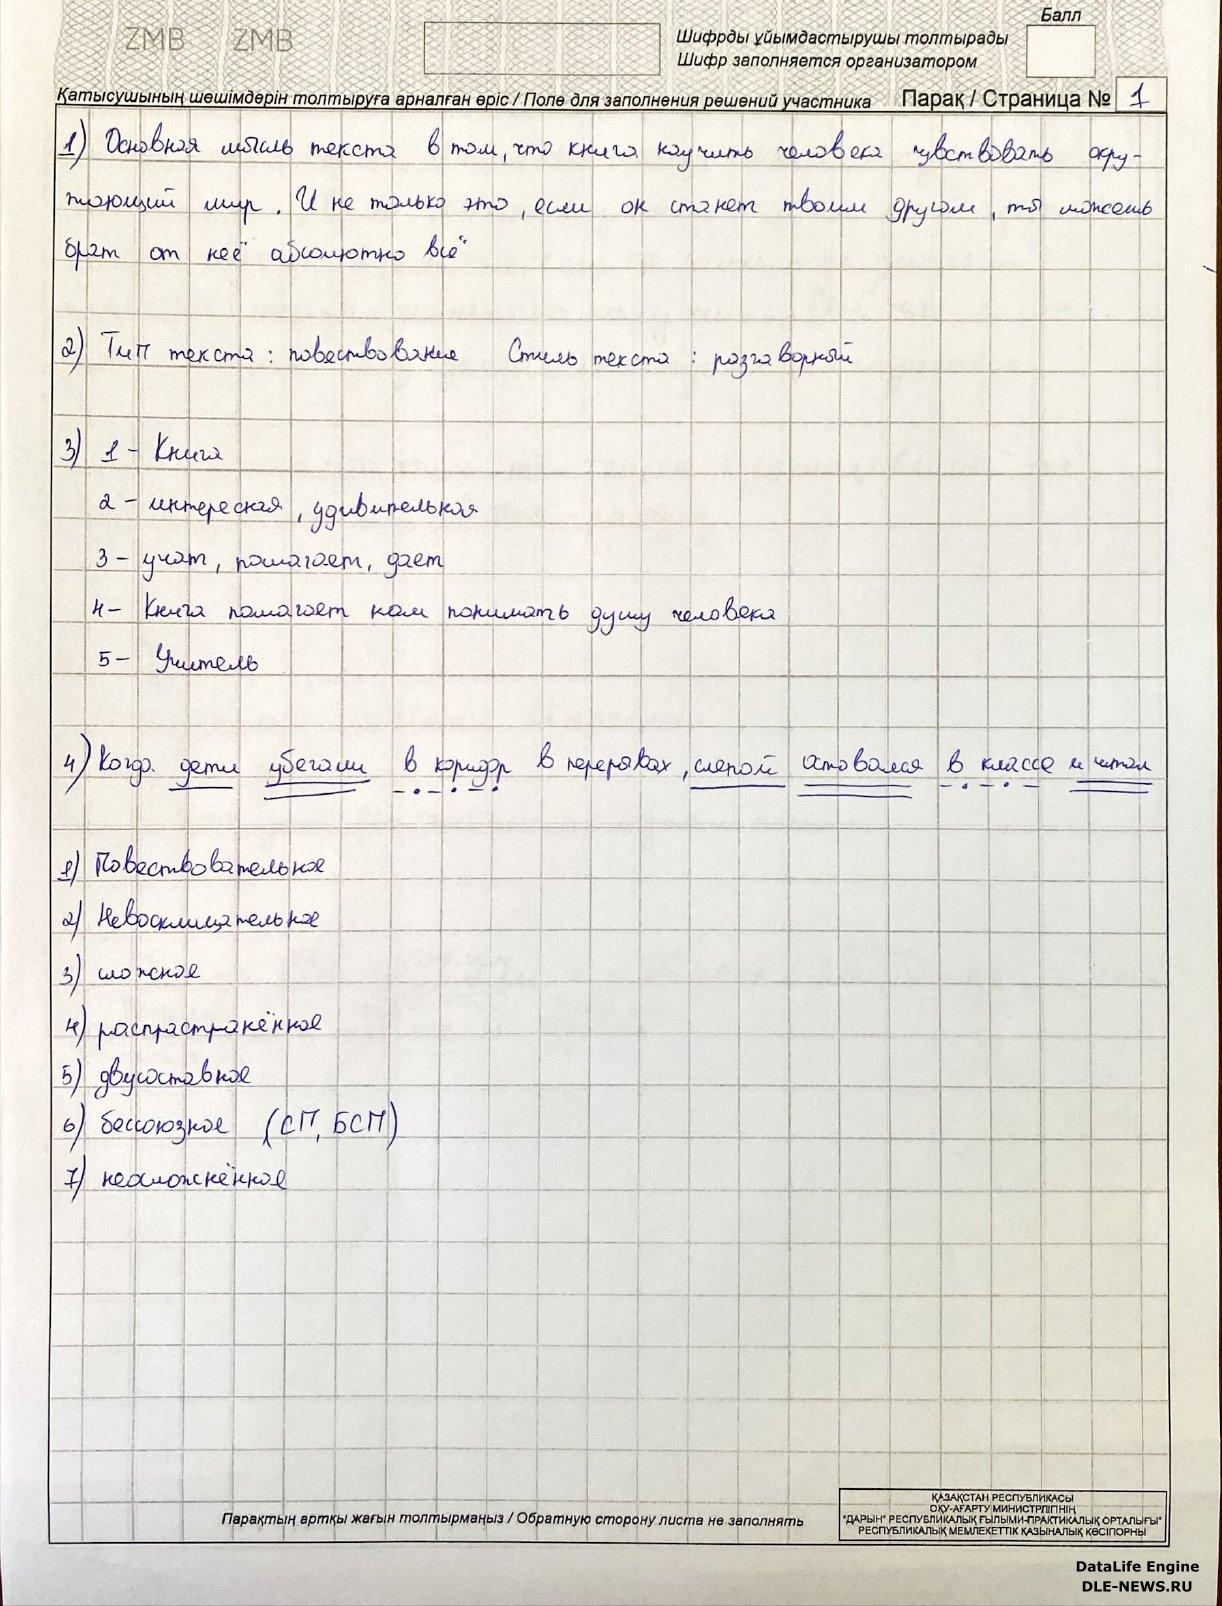 ZMB ZMB
Балл
Шифрды ұйымдастырушы толтырады
Шифр заполняется организатором
Қатысушының шешімдерін толтыруға арналған өріс / Поле для заполнения решений участника Парақ / Страница № 1
1) Основная мысль текста в том, что книга научить человека чувствовать окру-
жающий мир. И не только это, если он станет твоим другом, ты можешь
брат от неё абсолютно всё
2) Тип текста: повествование Стиль текста: разгаворный
3) 1 - Книга
2 - интересная, удивительная
3 - учат, помагает, дает
4 - Книга помагает нам понимать душу человека
5 - Учитель
4) Когда дети убегали в коридор в перервах, слепой оставался в классе и читал
1) Повествовательное
2) Невосклицательное
3) сложное
4) распрастранённое
5) двусоставное
6) бессоюзное (СП, БСП)
7) неосложнённое
Парақтың артқы жағын толтырмаңыз / Обратную сторону листа не заполнять
ҚАЗАҚСТАН РЕСПУБЛИКАСЫ
ОҚУ-АҒАРТУ МИНИСТРЛІГІНІҢ
"ДАРЫН" РЕСПУБЛИКАЛЫҚ ҒЫЛЫМИ-ПРАКТИКАЛЫҚ ОРТАЛЫҒЫ"
РЕСПУБЛИКАЛЫҚ МЕМЛЕКЕТТІК ҚАЗЫНАЛЫҚ КӘСІПОРНЫ
DataLife Engine
DLE-NEWS.RU